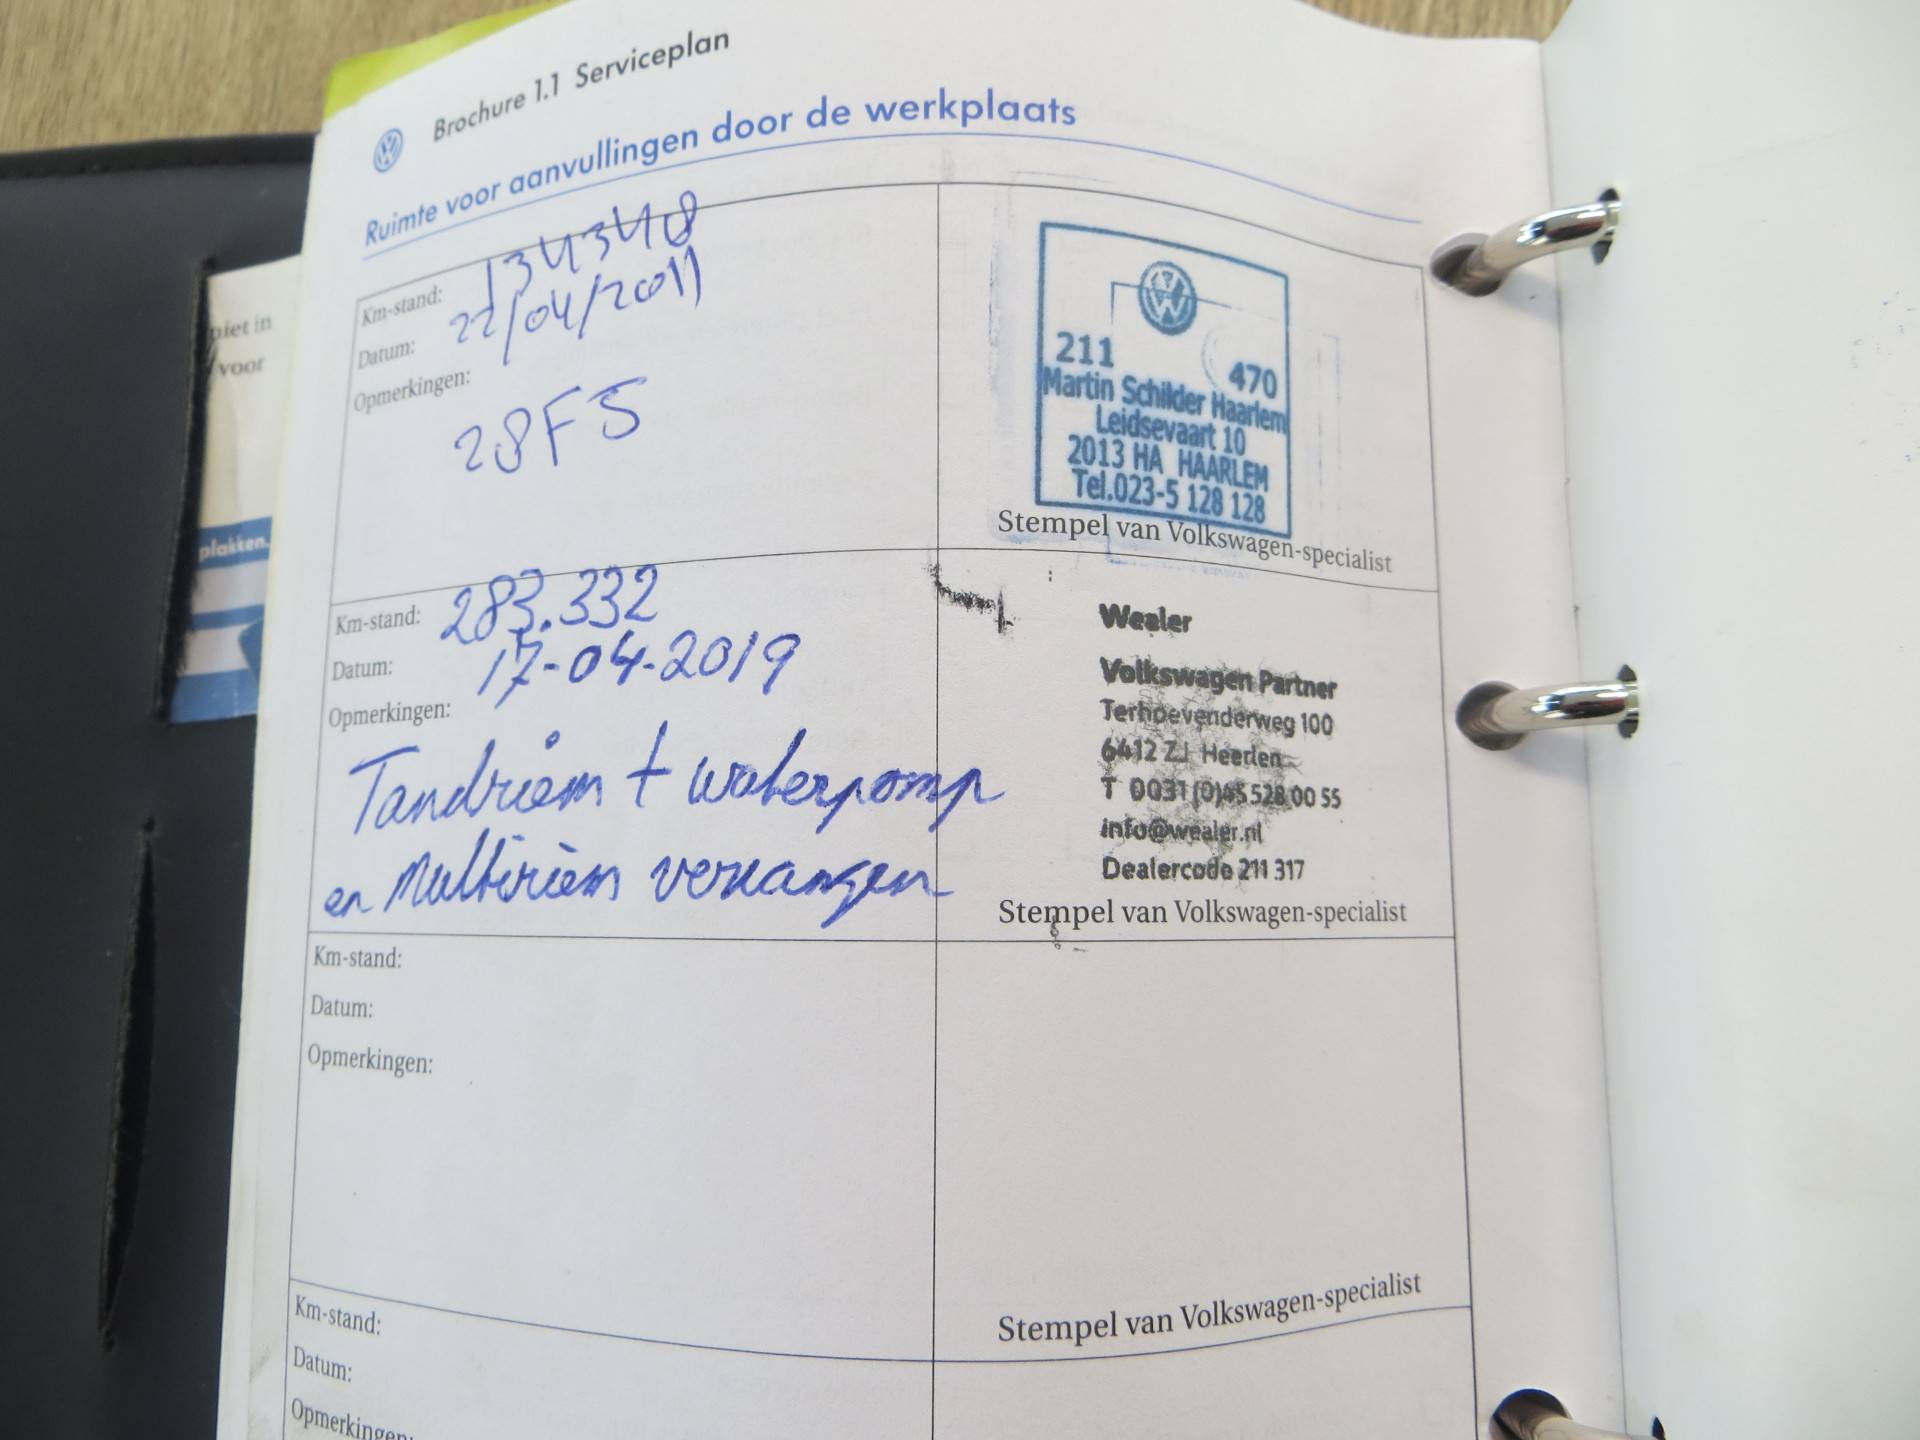 Brochure 1.1 Serviceplan
Ruimte voor aanvullingen door de werkplaats
Km-stand: 134348
Datum: 22/04/2011
Opmerkingen:
28F5
211 470
Martin Schilder Haarlem
Leidsevaart 10
2013 HA HAARLEM
Tel.023-5 128 128
Stempel van Volkswagen-specialist
Km-stand: 283.332
Datum: 17-04-2019
Opmerkingen:
Tandriem + waterpomp
en Multiriem vervangen
Wealer
Volkswagen Partner
Terhoevenderweg 100
6412 ZJ Heerlen
T 0031 (0)45 528 00 55
info@wealer.nl
Dealercode 211 317
Stempel van Volkswagen-specialist
Km-stand:
Datum:
Opmerkingen:
Stempel van Volkswagen-specialist
Km-stand:
Datum:
Opmerkingen:
niet in
voor
plakken.